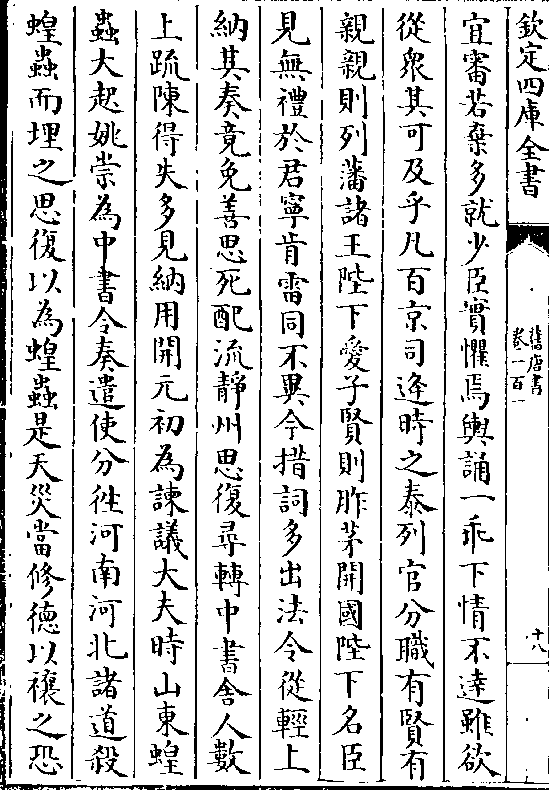 欽定四庫全書
舊唐書
卷一百一
十八
宜審若棄多就少臣實懼焉輿誦一乖下情不達雖欲
從衆其可及乎凡百京司逢時之泰列官分職有賢有
親親則列藩諸王陛下愛子賢則胙茅開國陛下名臣
見無禮於君寧肯雷同不異今措詞多出法令從輕上
納其奏竟免善思死配流靜州思復尋轉中書舍人數
上䟽陳得失多見納用開元初為諫議大夫時山東蝗
蟲大起姚崇為中書令奏遣使分徃河南河北諸道殺
蝗蟲而埋之思復以為蝗蟲是天災當修德以禳之恐